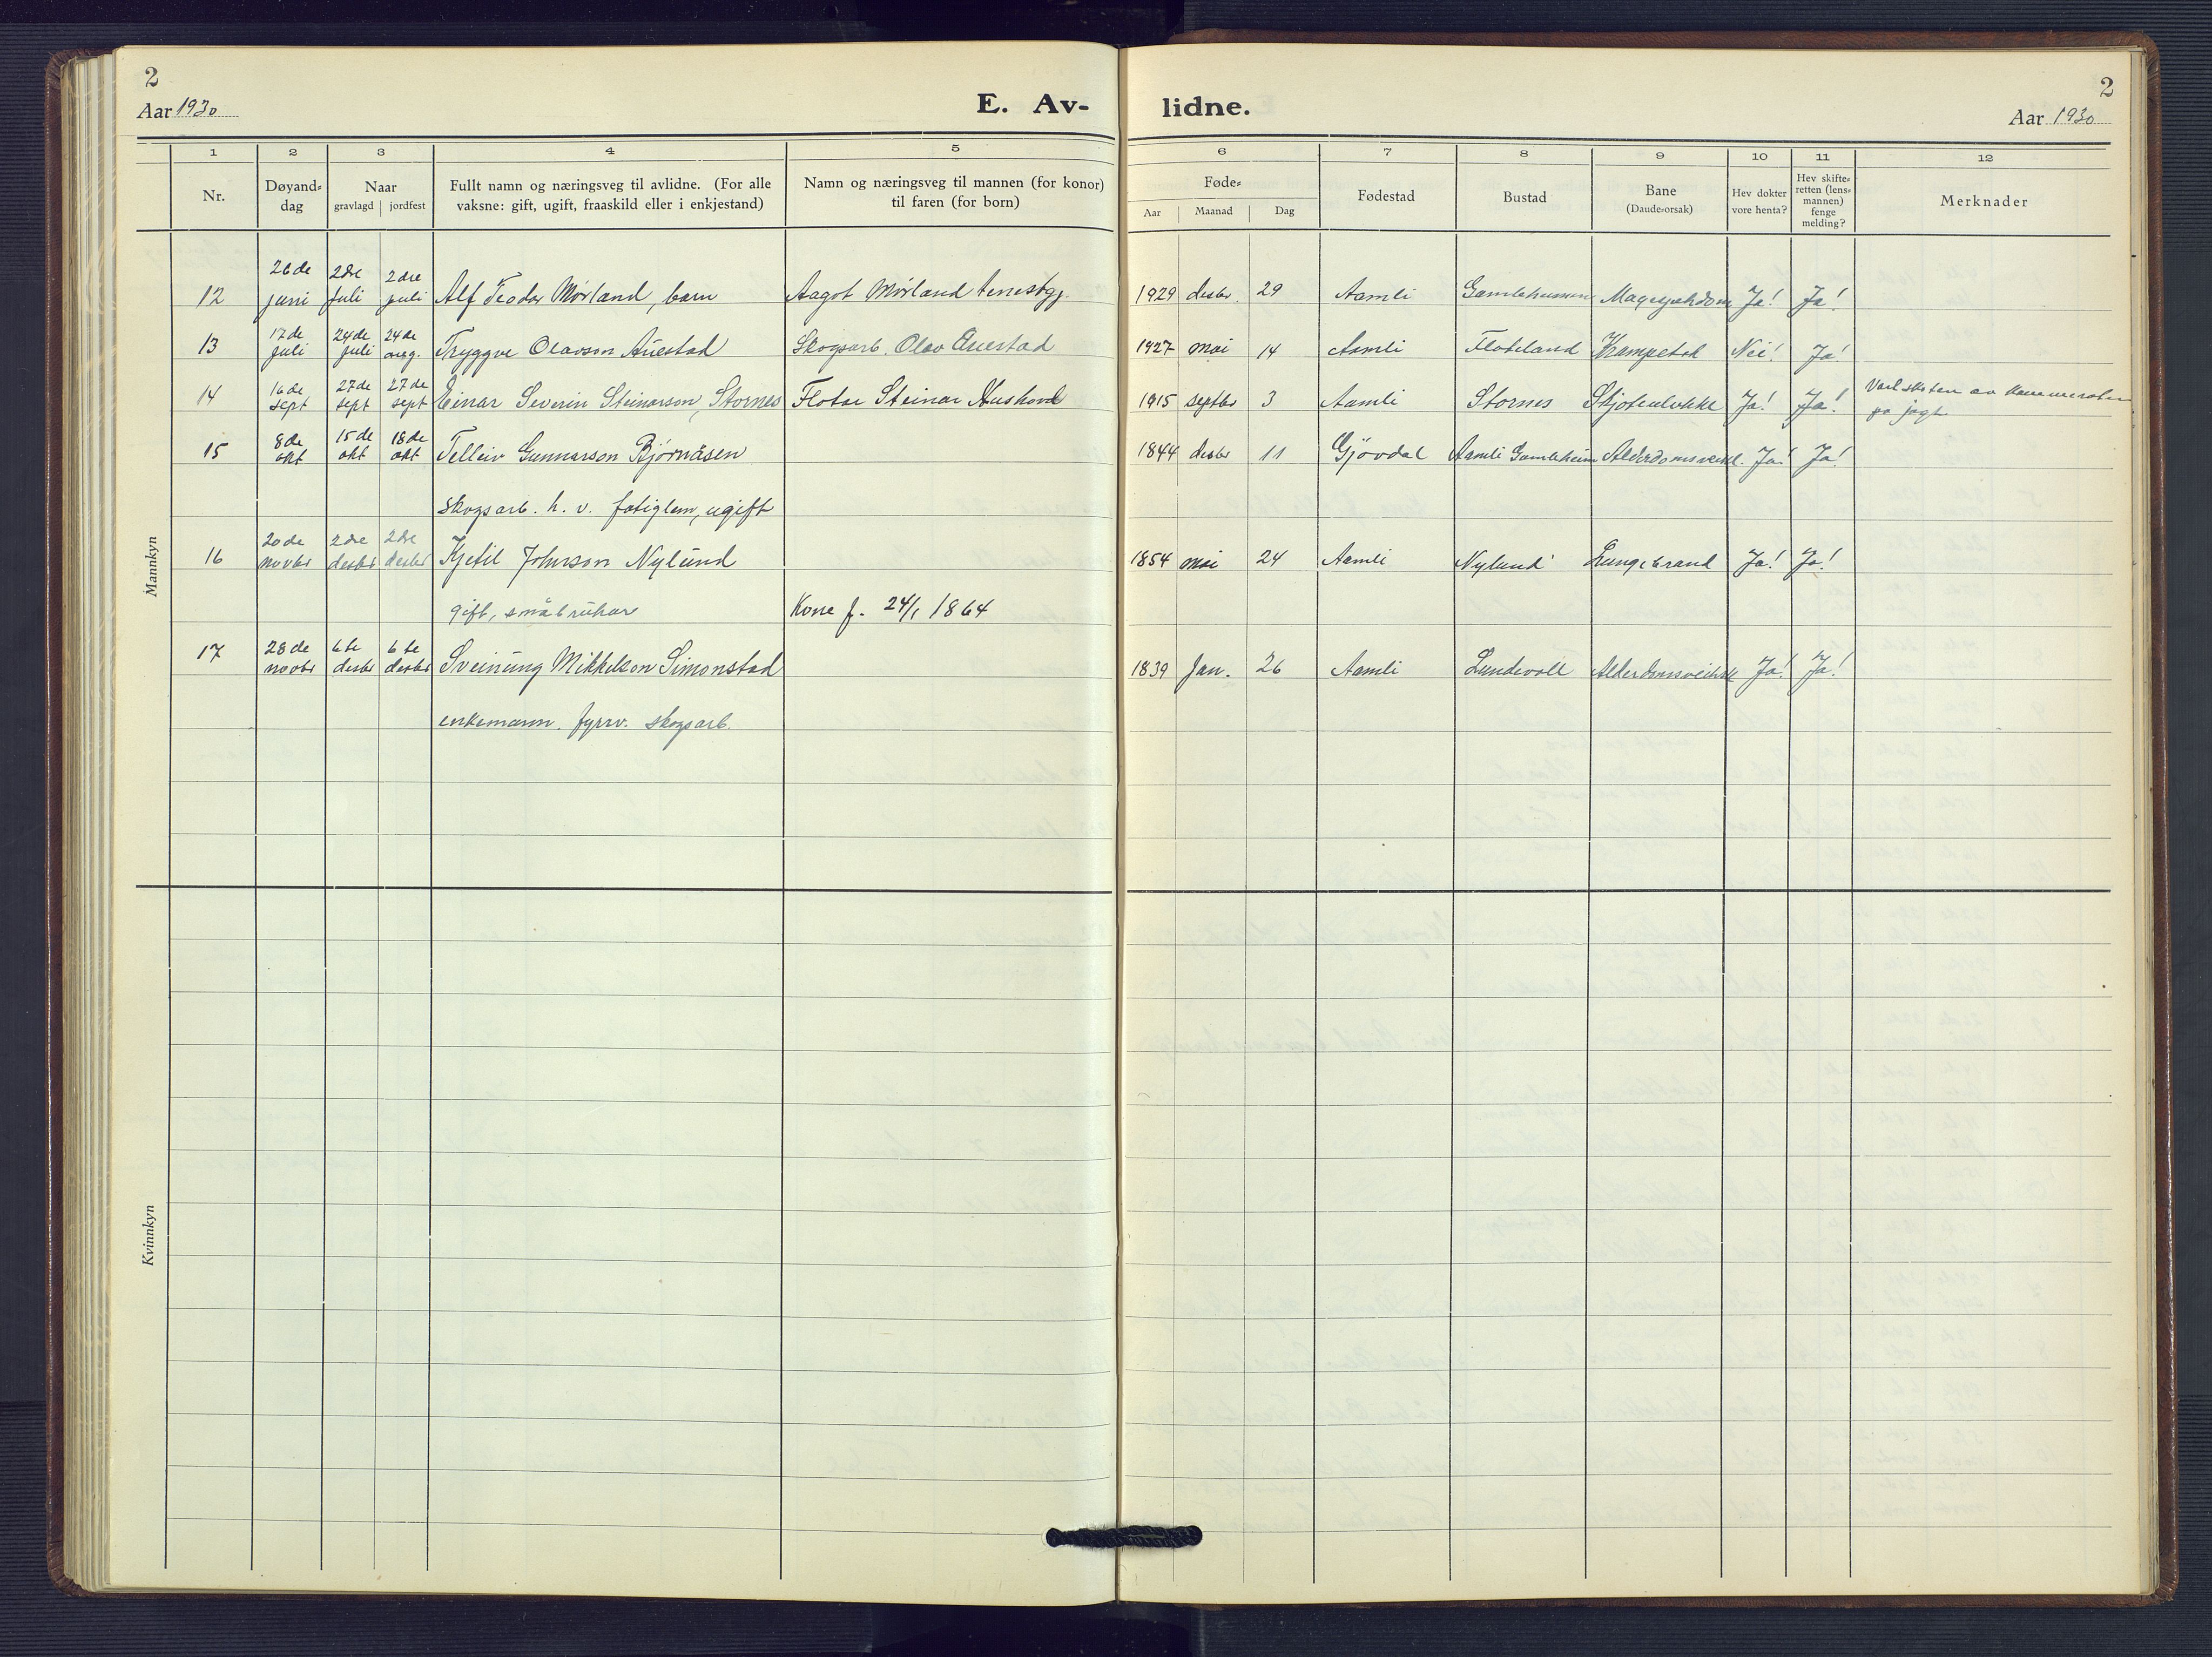 2
Aar 1930
E. Av-
lidne.
2
Aar 1930
1 2 3 4 5 6 7 8 9 10 11 12
Nr.
Døyand-
dag
Naar
gravlagd | jordfest
Fullt namn og næringsveg til avlidne. (For alle
vaksne: gift, ugift, fraaskild eller i enkjestand)
Namn og næringsveg til mannen (for konor)
til faren (for born)
Føde-
Aar Maanad Dag
Fødestad
Bustad
Bane
(Daude-orsak)
Hev dokter
vore henta?
Hev skifte-
retten (lens-
mannen)
fenge
melding?
Merknader
Mannkyn
26de 2dre 2dre
12 juni juli juli Alf Teodor Mørland, barn Aagot Mørland tenestgj. 1929 desbr. 29 Aamli Ja! Ja!
17de 24de 24de
13 juli juli aug. Tryggve Olavson Auestad Skogsarb. Olav Auestad 1927 mai 14 Aamli Floteland Nei! Ja!
16de 27de 27de
14 sept sept sept Einar Severin Steinarson, Stornes Fløtar Steinar 1915 septbr 3 Aamli Stornes Skjoteulukke Ja! Ja! Vart skoten av kameraten
på jagt
8de 15de 18de
15 okt okt okt Telleiv Gunnarson Bjørnåsen 1844 desbr 11 Gjövdal Aamli Gamleheim Alderdomsveikl. Ja! Ja!
skogsarb. h. v. fatiglem, ugift
20de 2dre 2dre
16 novbr desbr desbr Kjetil Johnson Nylund 1854 mai 24 Aamli Nylund Lungebrand Ja! Ja!
gift, småbrukar Kone f. 24/1 1864
28de 6te 6te
17 novbr desbr desbr Sveinung Mikkelson Simonstad 1839 Jan. 26 Aamli Lundevoll Ja! Ja!
enkemann. fyrrv. skogsarb.
Kvinnkyn